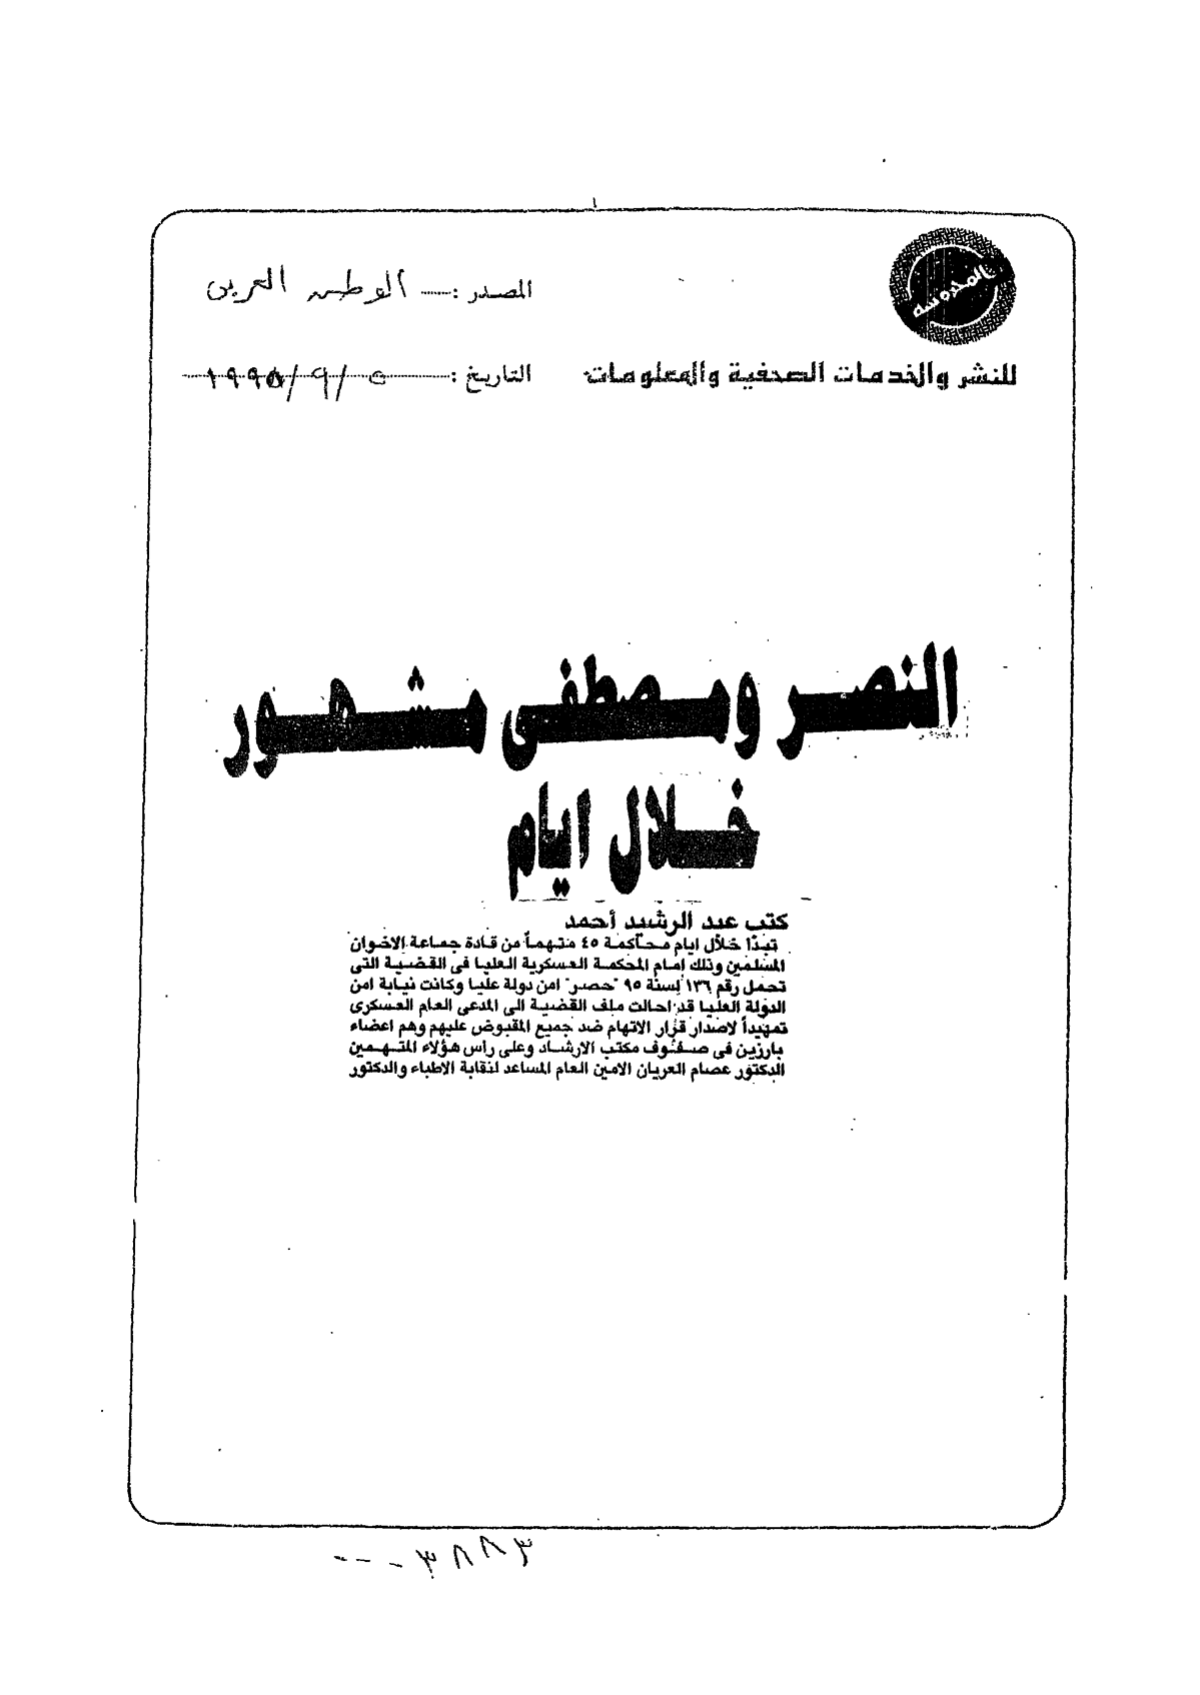 المحروسة
المصدر : الوطن العربى
للنشر والخدمات الصحفية والمعلومات
التاريخ : ٥ / ٩ / ١٩٩٥
النصر ومصطفى مشهور
خلال ايام
كتب عبد الرشيد أحمد
تبدأ خلال ايام محاكمة ٤٥ متهماً من قادة جماعة الاخوان
المسلمين وذلك امام المحكمة العسكرية العليا فى القضية التى
تحمل رقم ١٣٦ لسنة ٩٥ "حصر" امن دولة عليا وكانت نيابة امن
الدولة العليا قد احالت ملف القضية الى المدعى العام العسكرى
تمهيداً لاصدار قرار الاتهام ضد جميع المقبوض عليهم وهم اعضاء
بارزين فى صفوف مكتب الارشاد وعلى راس هؤلاء المتهمين
الدكتور عصام العريان الامين العام المساعد لنقابة الاطباء والدكتور